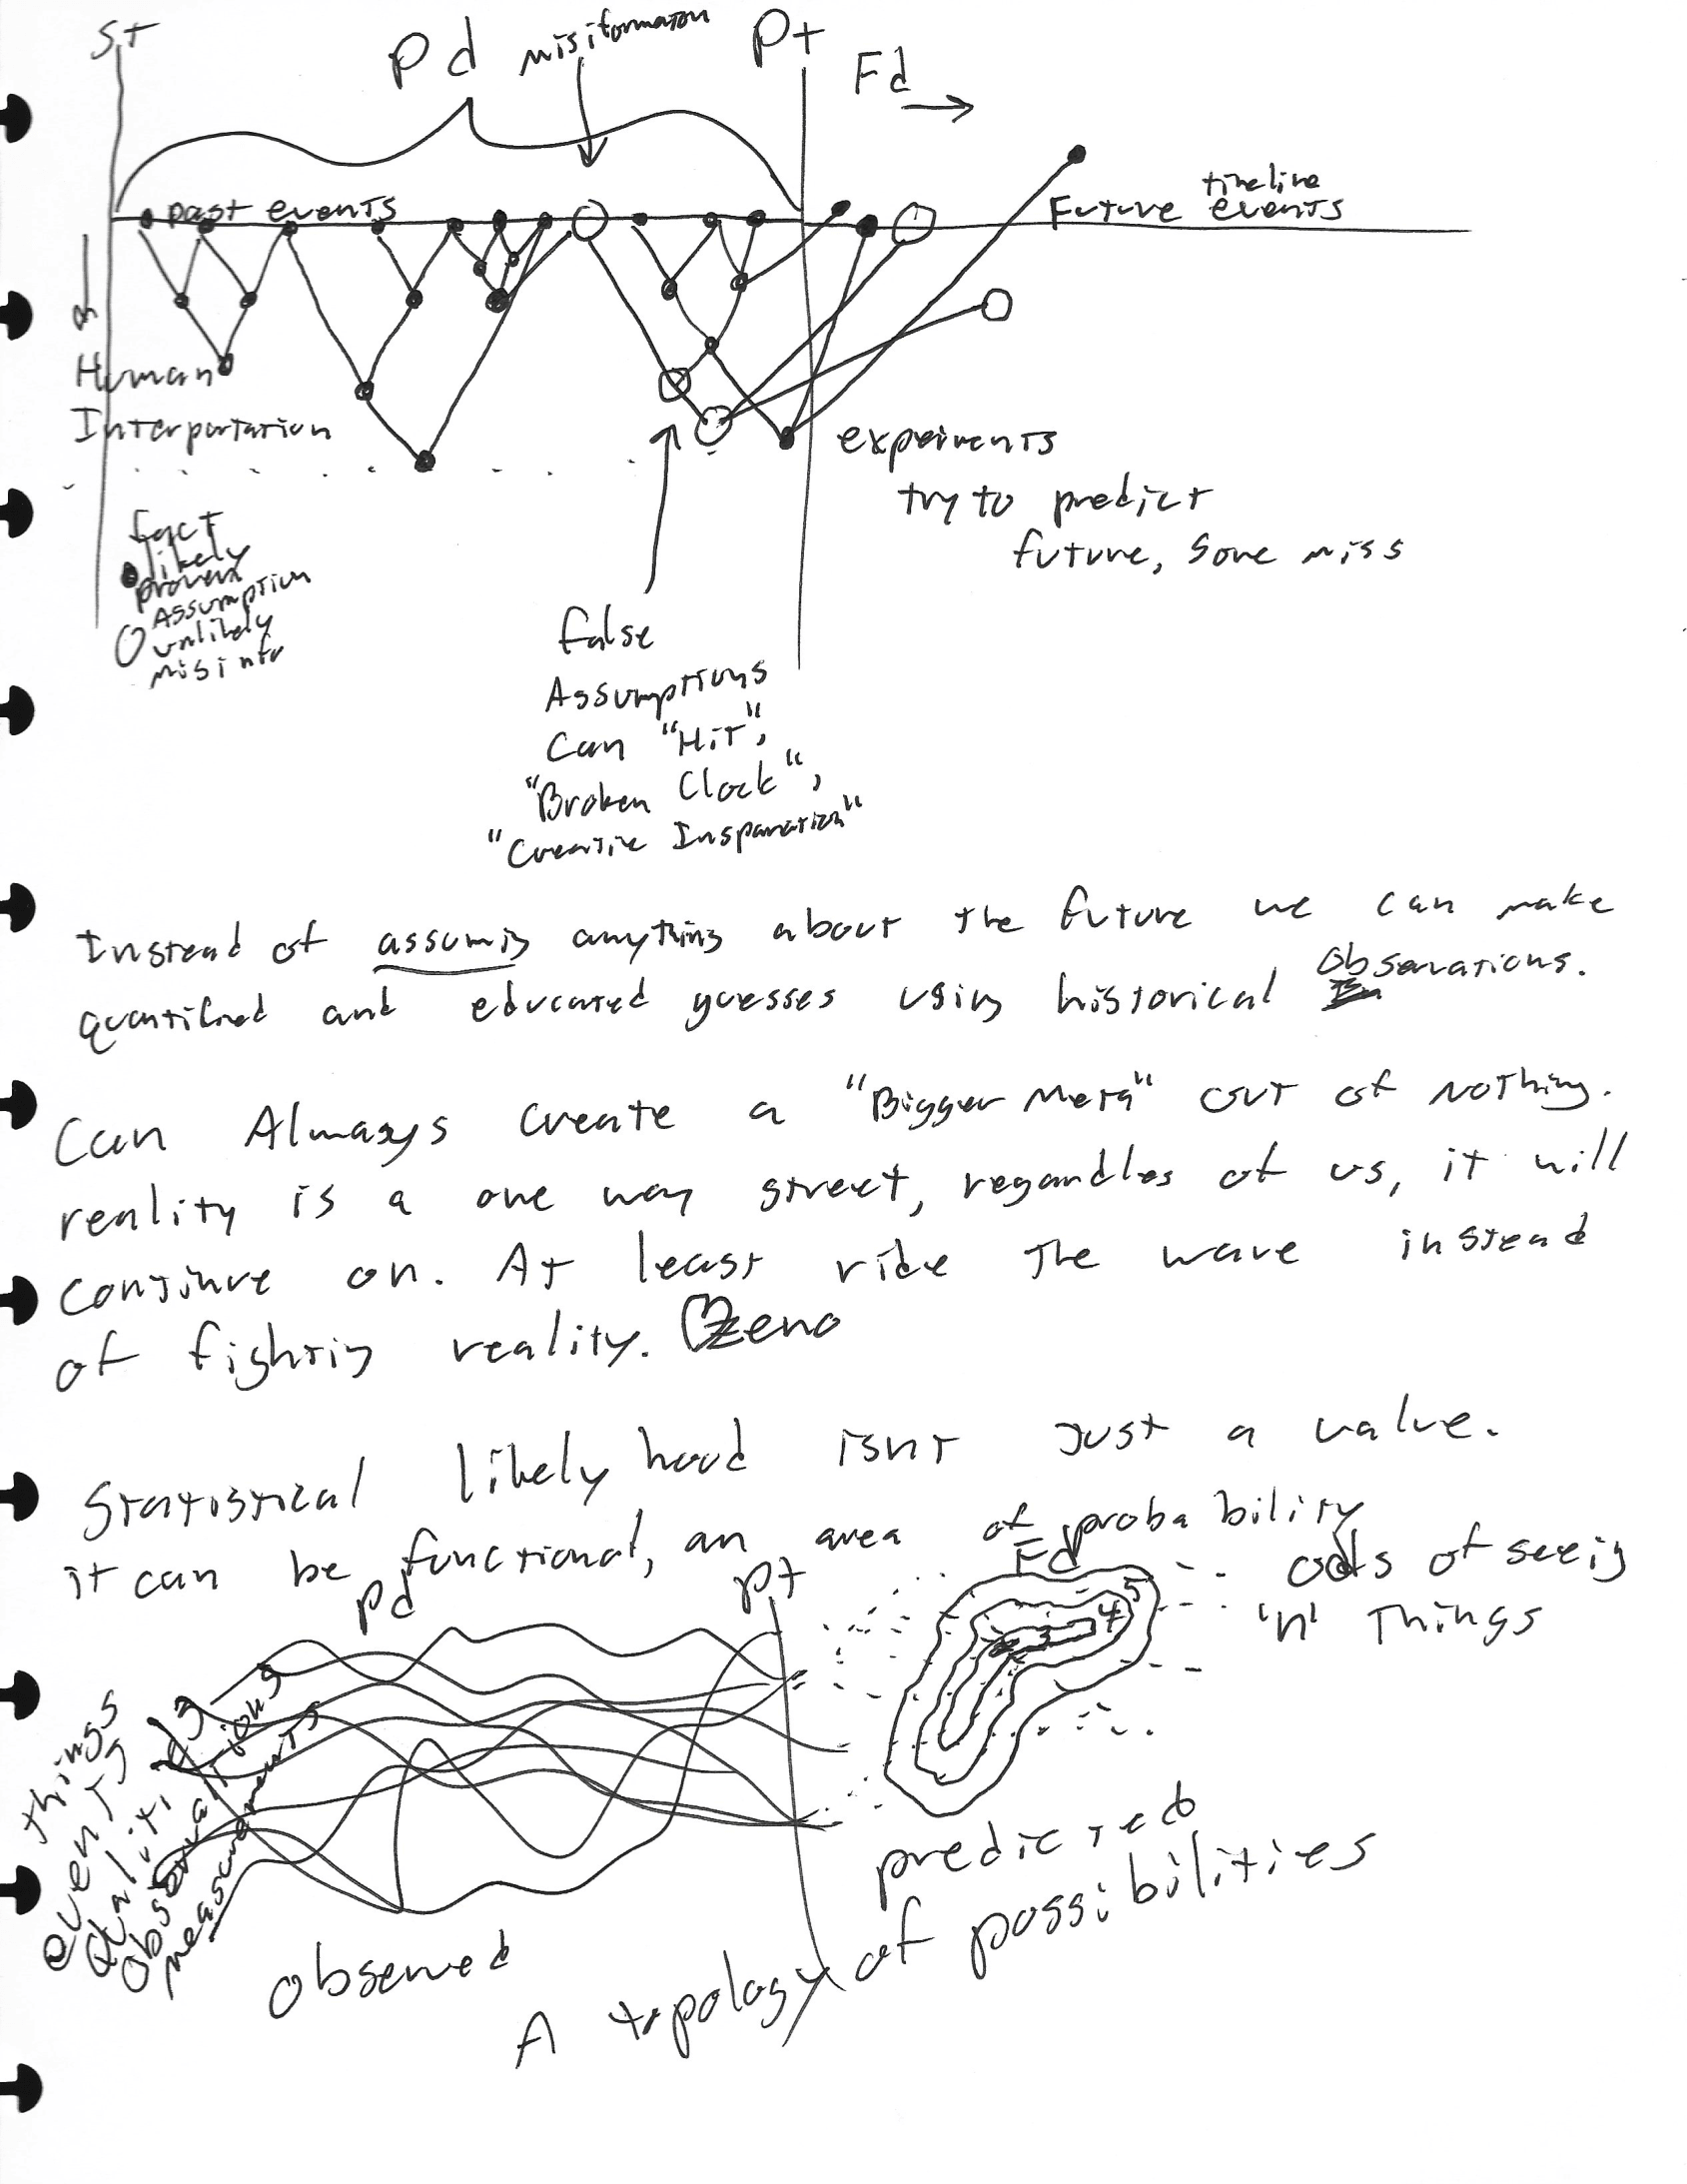 St
Pd
misiformaton
Pt
Fd
past events
timeline
Future events
Human
Interpertation
fact
likely
proven
Assumption
unlikely
misinfo
experiments
try to predict
future, Some miss
false
Assumptions
Can "Hit",
"Broken Clock",
"Creative Insparation"
Instead of assuming anything about the future we can make
quantified and educated guesses using historical Observations.
Can Always create a "Bigger Meta" out of nothing.
reality is a one way street, regardles of us, it will
continue on. At least ride the wave instead
of fighting reality. Zeno
Statistical likely hood isnt Just a value.
it can be functional, an area of probability
Pd
Pt
Fd
odds of seeing
'n' Things
3
4
5
things
events
Qualities
Observations
measurements
Observed
predicted
A topology of possibilities